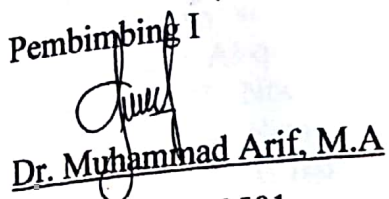 Pembimbing I
Dr. Muhammad Arif, M.A